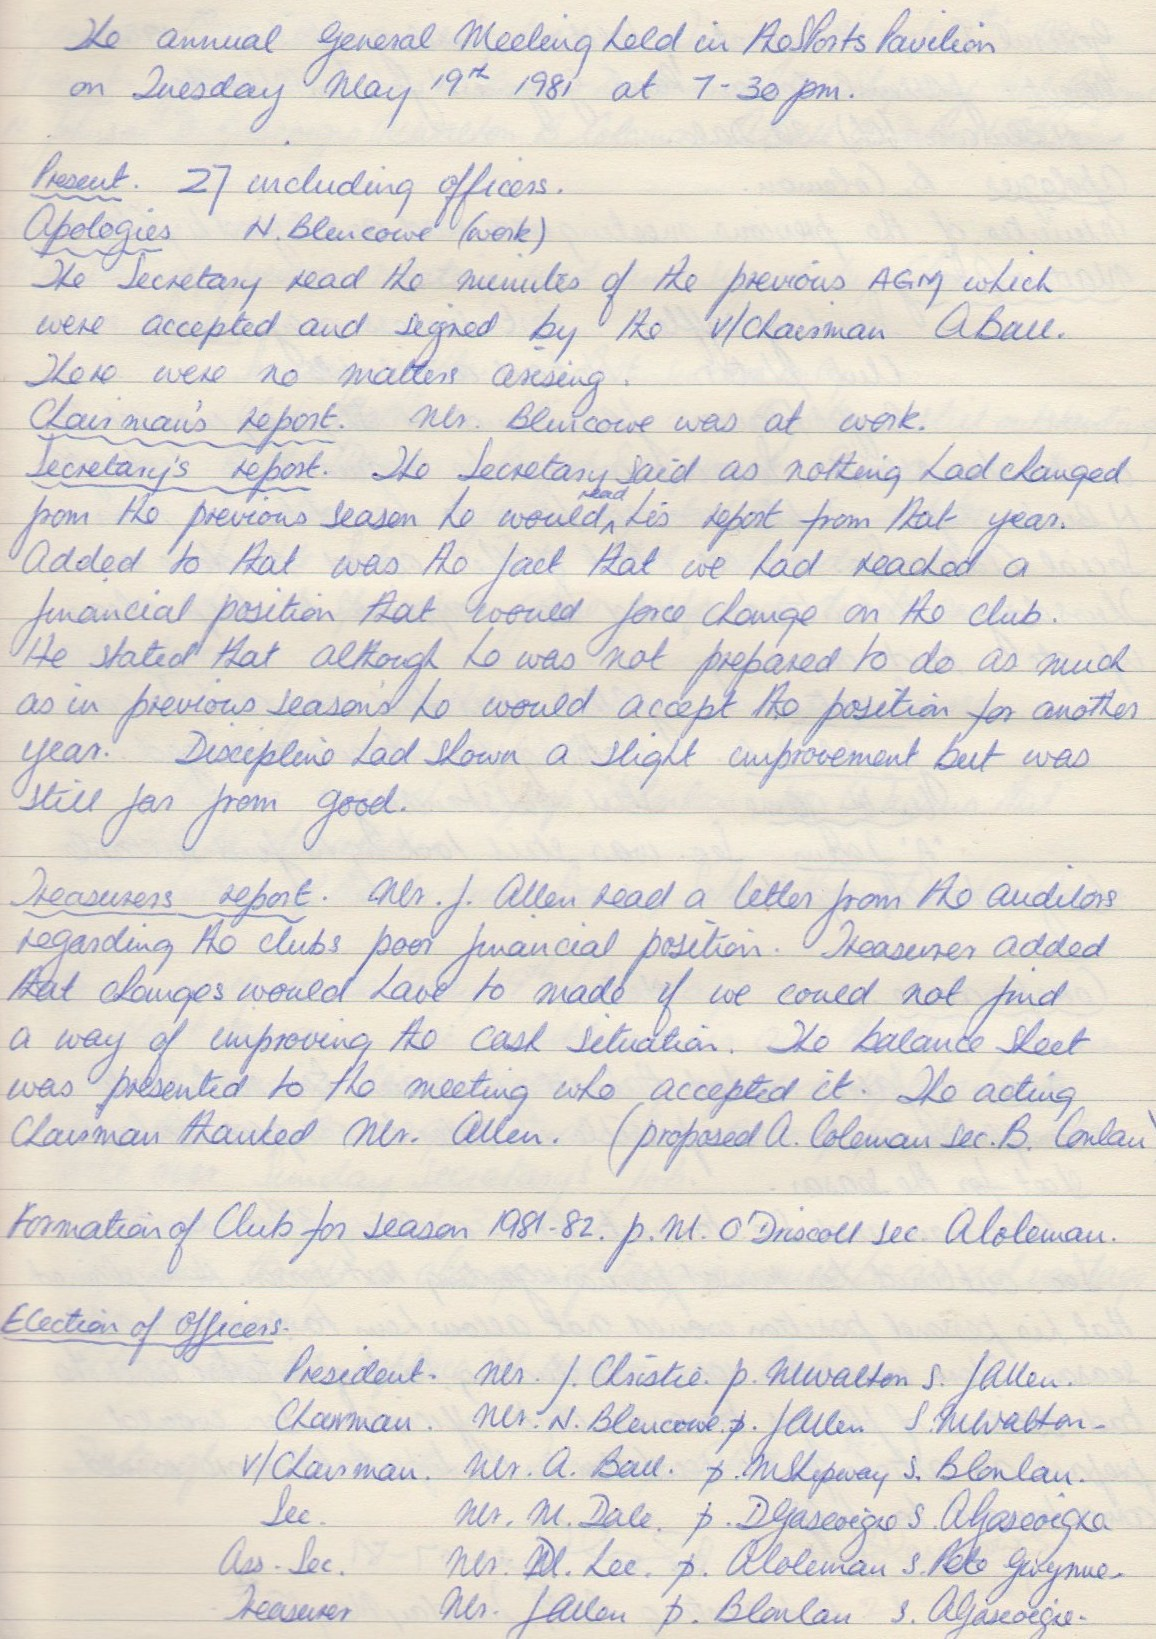 The annual General Meeting held in the Sports Pavilion
on Tuesday May 19th 1981 at 7-30 pm.
Present. 27 including officers.
Apologies N. Blencowe (work)
The Secretary read the minutes of the previous AGM which
were accepted and signed by the V/Chairman A Ball.
There were no matters arising.
Chairman's report. Mr. Blencowe was at work.
Secretary's report. The Secretary said as nothing had changed
from the previous season he would read his report from that year.
Added to that was the fact that we had reached a
financial position that would force change on the club.
He stated that although he was not prepared to do as much
as in previous seasons he would accept the position for another
year. Discipline had shown a slight improvement but was
still far from good.
Treasurers report. Mr. J. Allen read a letter from the auditors
regarding the clubs poor financial position. Treasurer added
that changes would have to made if we could not find
a way of improving the cash situation. The balance sheet
was presented to the meeting who accepted it. The acting
Chairman thanked Mr. Allen. (proposed A. Coleman sec. B. Conlan)
Formation of Club for season 1981-82. p. M. O'Driscoll sec. A Coleman.
Election of Officers.
President. Mr. J. Christie. p. M Walton s. J Allen.
Chairman. Mr. N. Blencowe. p. J Allen s. M Walton.
V/Chairman. Mr. A. Ball. p. M Shipway s. B Conlan.
Sec. Mr. M. Dale. p. D Gascoigne s. A Gascoigne
Ass. Sec. Mr. M. Lee. p. A Coleman s. Pete Gwynne.
Treasurer Mr. J Allen p. B Conlan s. A Gascoigne.